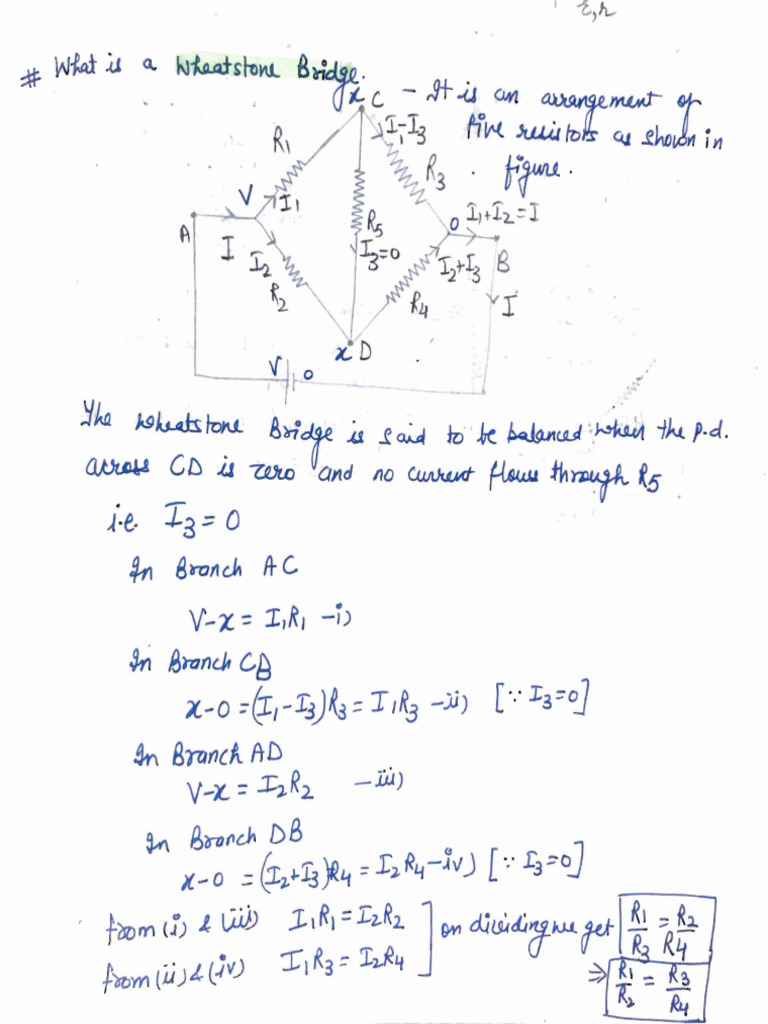 ε, r
# What is a Wheatstone Bridge.
x C - It is an arrangement of
five resistors as shown in
figure.
R1
I1-I3
R3
V
I1
A
I
R5
I3=0
0
I1+I2=I
I2
R2
I2+I3
B
R4
I
x D
V
0
The Wheatstone Bridge is said to be balanced when the p.d.
across CD is zero and no current flows through R5
i.e. I3 = 0
In Branch AC
V-x = I1R1 -i)
In Branch CB
x-0 = (I1-I3)R3 = I1R3 -ii) [∵ I3=0]
In Branch AD
V-x = I2R2 -iii)
In Branch DB
x-0 = (I2+I3)R4 = I2R4 -iv) [∵ I3=0]
from (i) & (iii) I1R1 = I2R2
from (ii) & (iv) I1R3 = I2R4
] on dividing we get R1/R3 = R2/R4
⇒ R1/R2 = R3/R4